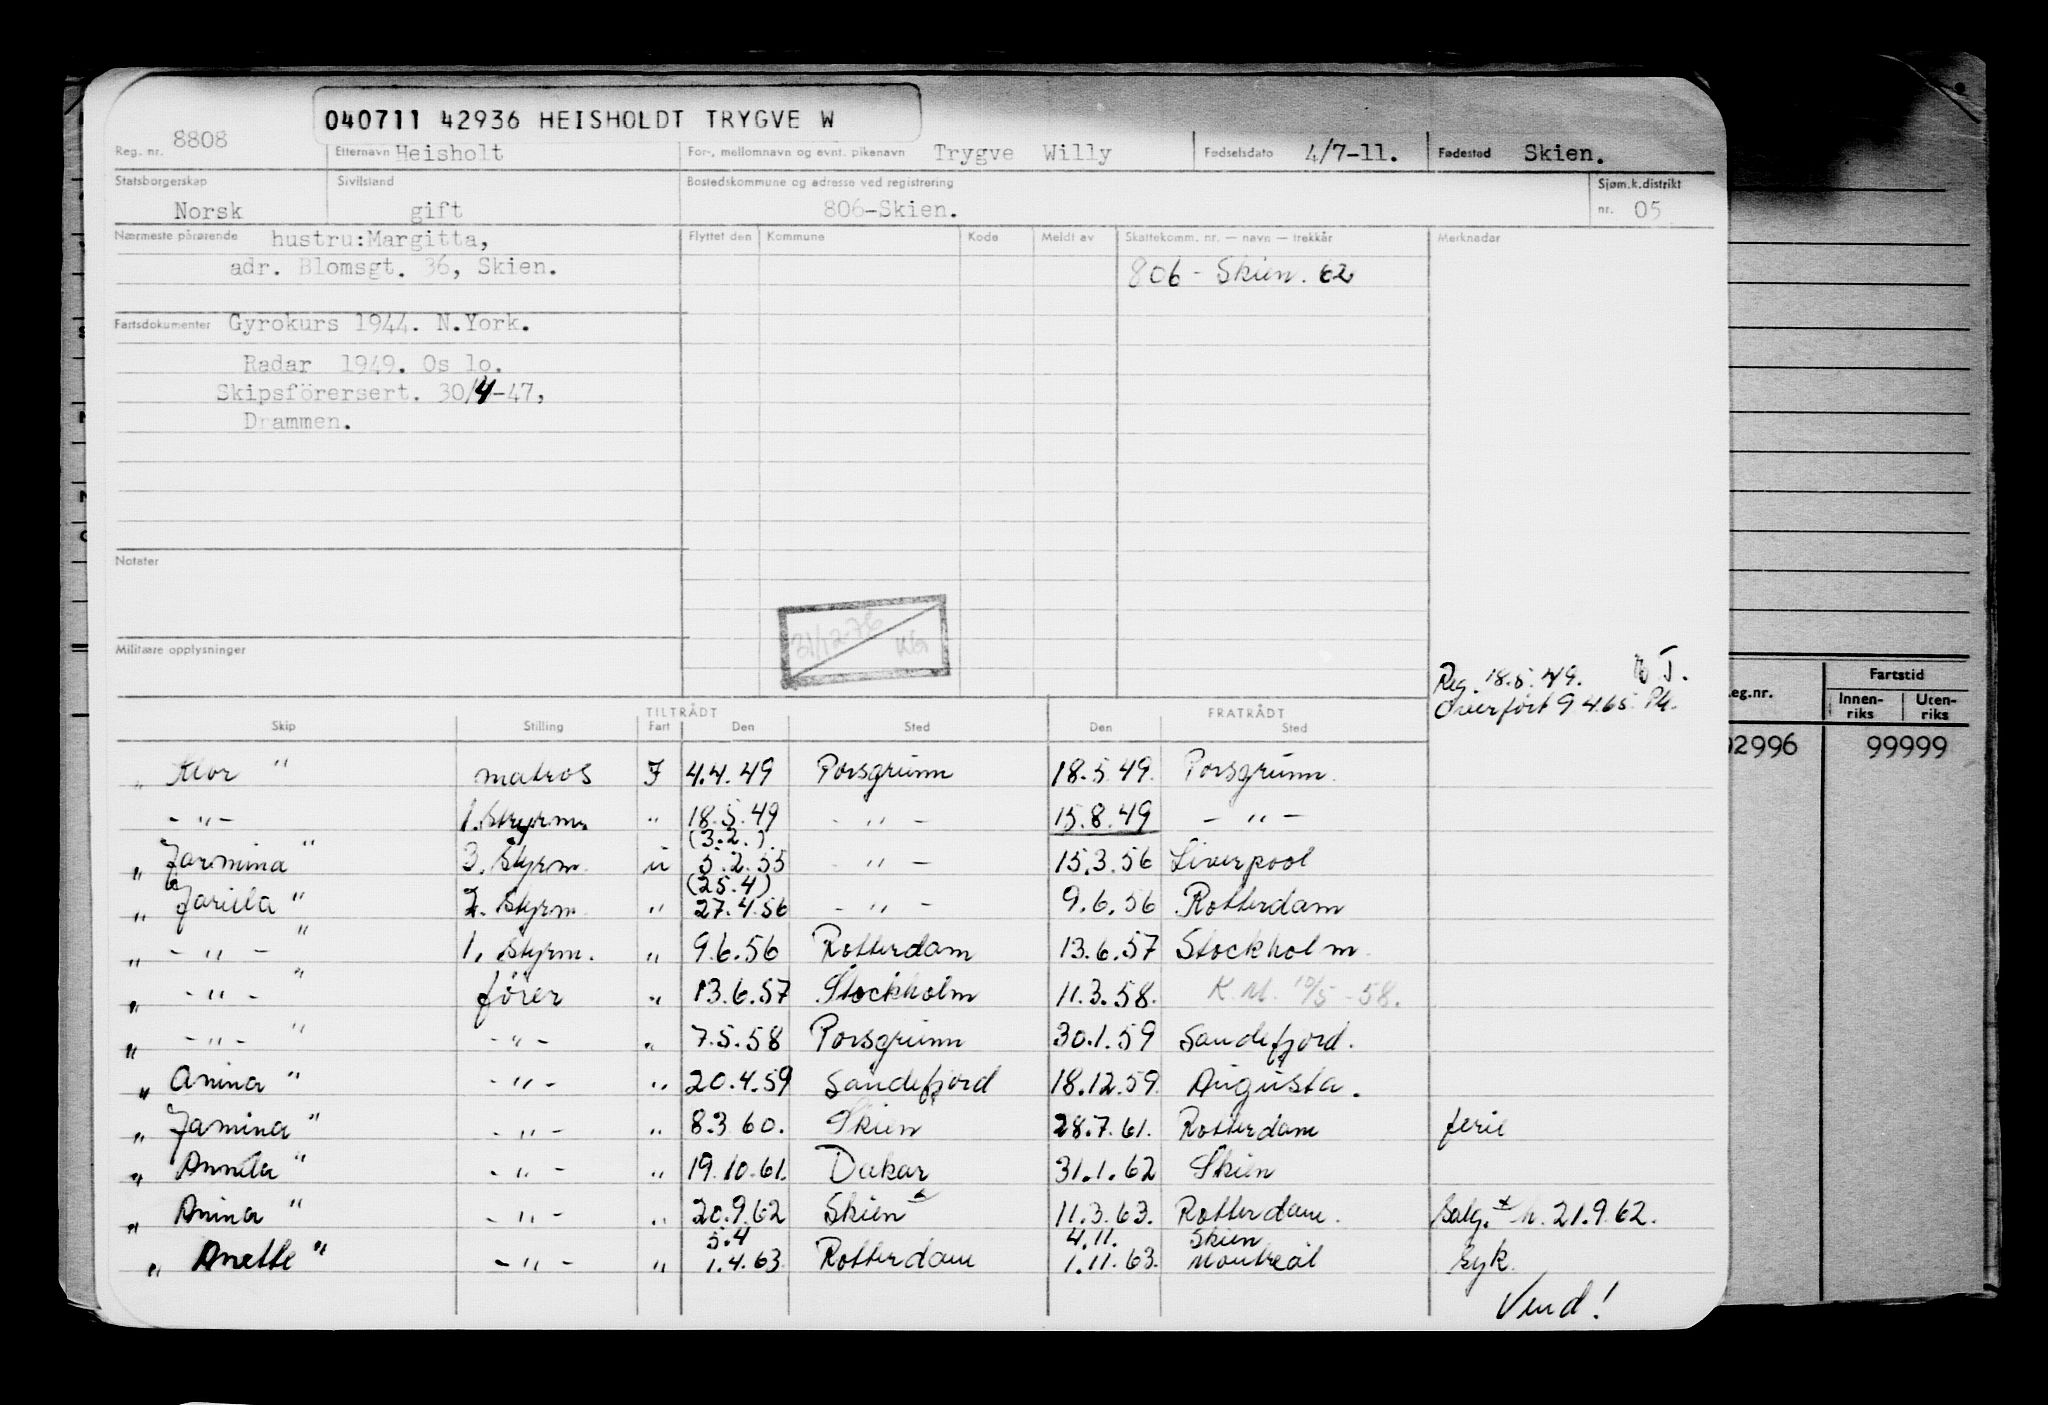 040711 42936 HEISHOLDT TRYGVE W
Reg. nr. 8808 Etternavn Heisholt For-, mellomnavn og evnt. pikenavn Trygve Willy Fødselsdato 4/7-11. Fødested Skien.
Statsborgerskap Sivilstand Bostedskommune og adresse ved registrering Sjøm.k.distrikt
Norsk gift 806-Skien. nr. 05
Nærmeste pårørende hustru:Margitta, Flyttet den Kommune Kode Meldt av Skattekomm. nr. — navn — trekkår Merknader
adr. Blomsgt. 36, Skien. 806 - Skien. 62
Fartsdokumenter Gyrokurs 1944. N.York.
Radar 1949. Os lo.
Skipsförersert. 30/4-47,
Drammen.
Notater
31/12-76
Militære opplysninger
Reg. 18.5.49.
Overført 9 4 65.
TILTRÅDT FRATRÅDT
Skip Stilling Fart Den Sted Den Sted
„ Klor " matros I 4.4.49 Porsgrunn 18.5.49. Porsgrunn.
- " - 1. Styrm. " 18.5.49 - " - 15.8.49 - " -
(3.2.)
„ Jarmina " 3. Styrm. u 5.2.55 - " - 15.3.56 Liverpool
(25.4)
„ Jarilla " 2. Styrm. " 27.4.56 - " - 9.6.56 Rotterdam
„ - " - " 1. Styrm. " 9.6.56 Rotterdam 13.6.57 Stockholm.
„ - " - " förer " 13.6.57 Stockholm 11.3.58. K.M. 10/5-58.
„ - " - " - " - " 7.5.58 Porsgrunn 30.1.59 Sandefjord.
„ Anina " - " - " 20.4.59 Sandefjord 18.12.59 Augusta.
„ Jamina " - " - " 8.3 60. Skien 28.7.61. Rotterdam ferie
„ Annita " - " - " 19.10.61. Dakar 31.1.62 Skien
„ Anina " - " - " 20.9.62 Skien x 11.3.63. Rotterdam. Salg. x 21.9.62.
5.4 4.11. Skien
„ Anette " - " - " 1.4.63 Rotterdam 1.11.63. Montreal syk.
Vend!
eg.nr. Fartstid
Innen-riks Uten-riks
2996 99999